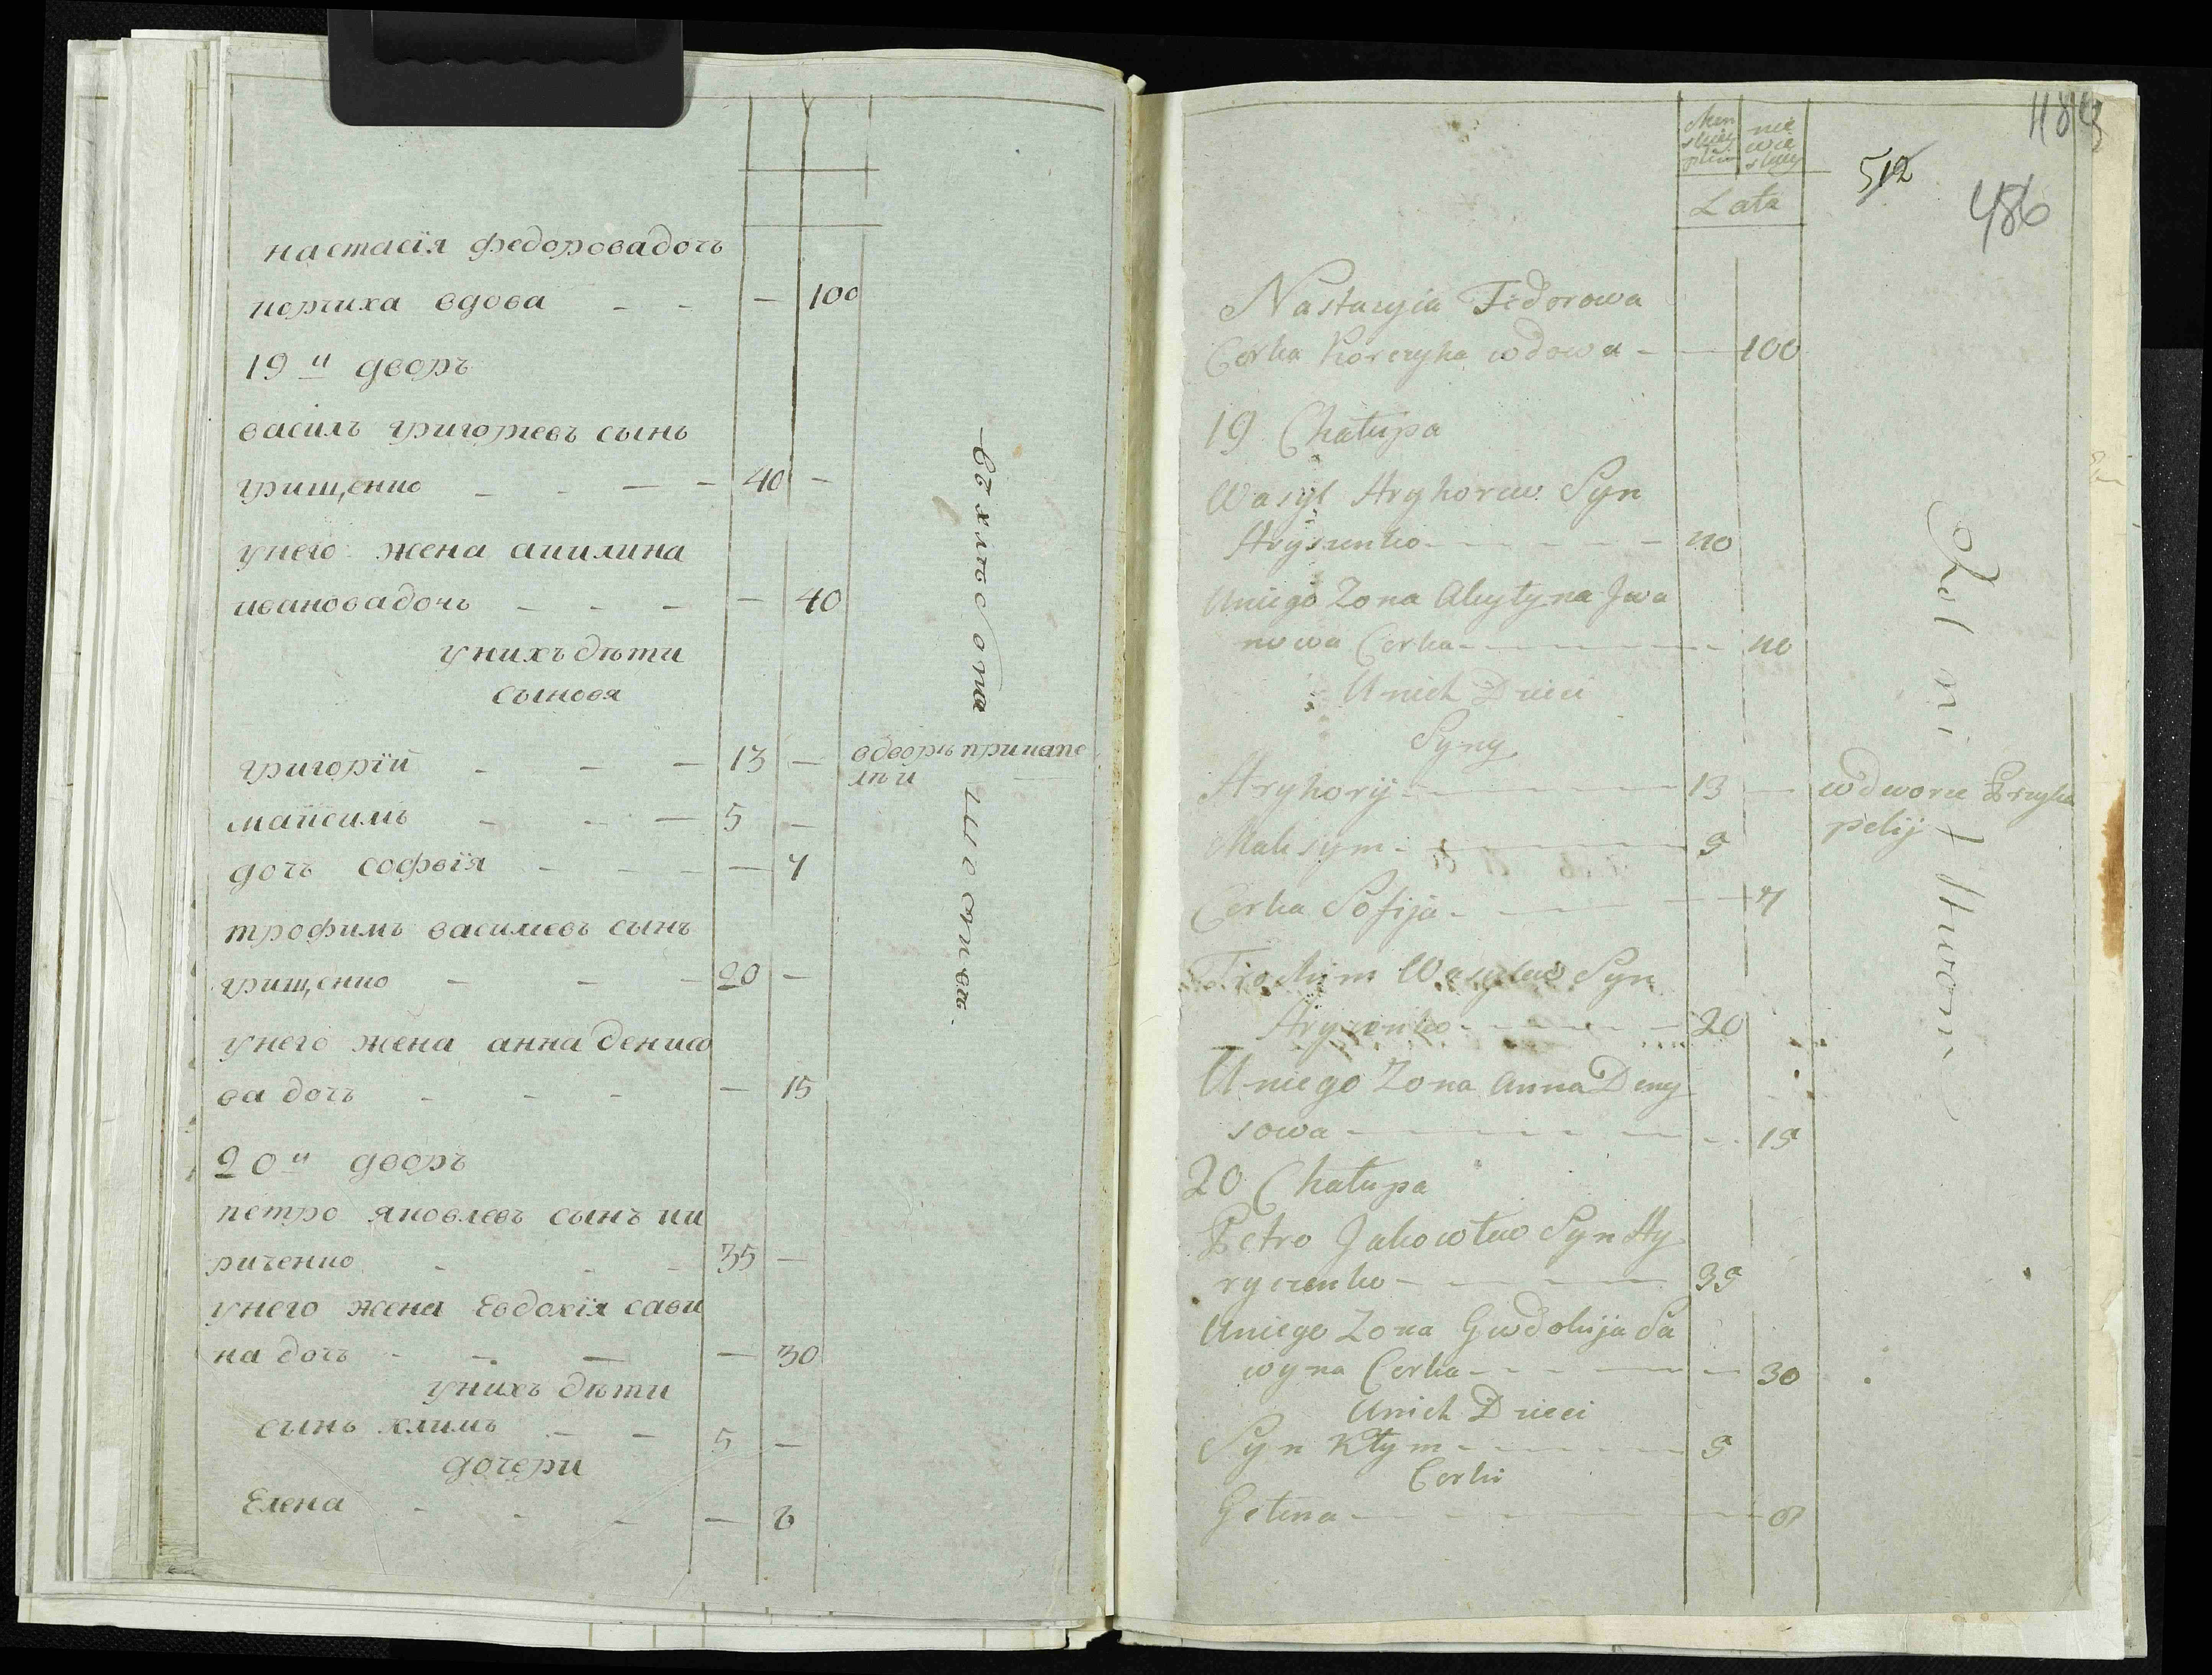 настасія федоровадочь
корчиха вдова - - - 100
19й дворъ
василь григориевъ сынъ
грищенко - - - - 40 -
унего жена акилина
ивановадочь - - - - 40
унихъ дѣти
сыновя
григорій - - - 13 - вдворѣ прикапе
лѣи
максимъ - - - 5 -
дочь софвія - - - - 7
трофимъ василиевъ сынъ
грищенко - - - 20 -
унего жена анна денисо
ва дочь - - - - 15
20й дворъ
петро яковлевъ сынъ ки
риченко - - - 35 -
унего жена Евдокія сави
на дочь - - - - 30
унихъ дѣти
сынъ клımъ - - 5 -
дочери
Елена - - - - 8
вхлѣбопашествѣ.
1184
512
486
nie
wie
Lata
Nastazyia Fedorowa
Corka Korczyha wdowa - - 100
19 Chałupa
Wasyl Hryhorew Syn
Hryszenko - - - - - 40
Uniego Zona Akyłyna Jwa
nowa Corka - - - - - 40
Unich Dzieci
Syny
Hryhorij - - - - 13 - wdworze Przyka
pelij
Maksym - - - - 5
Corka Sofija - - - - 7
Trochim Wasylew Syn
Hryszenko - - - - 20
Uniego Zona Anna Deny
sowa - - - - - 15
20 Chałupa
Petro Jakowlew Syn Ky
ryczenko - - - - 35
Uniego Zona Ewdokija Sa
wyna Corka - - - - 30
Unich Dzieci
Syn Kłym - - - - 5
Corki
Gełena - - - - 8